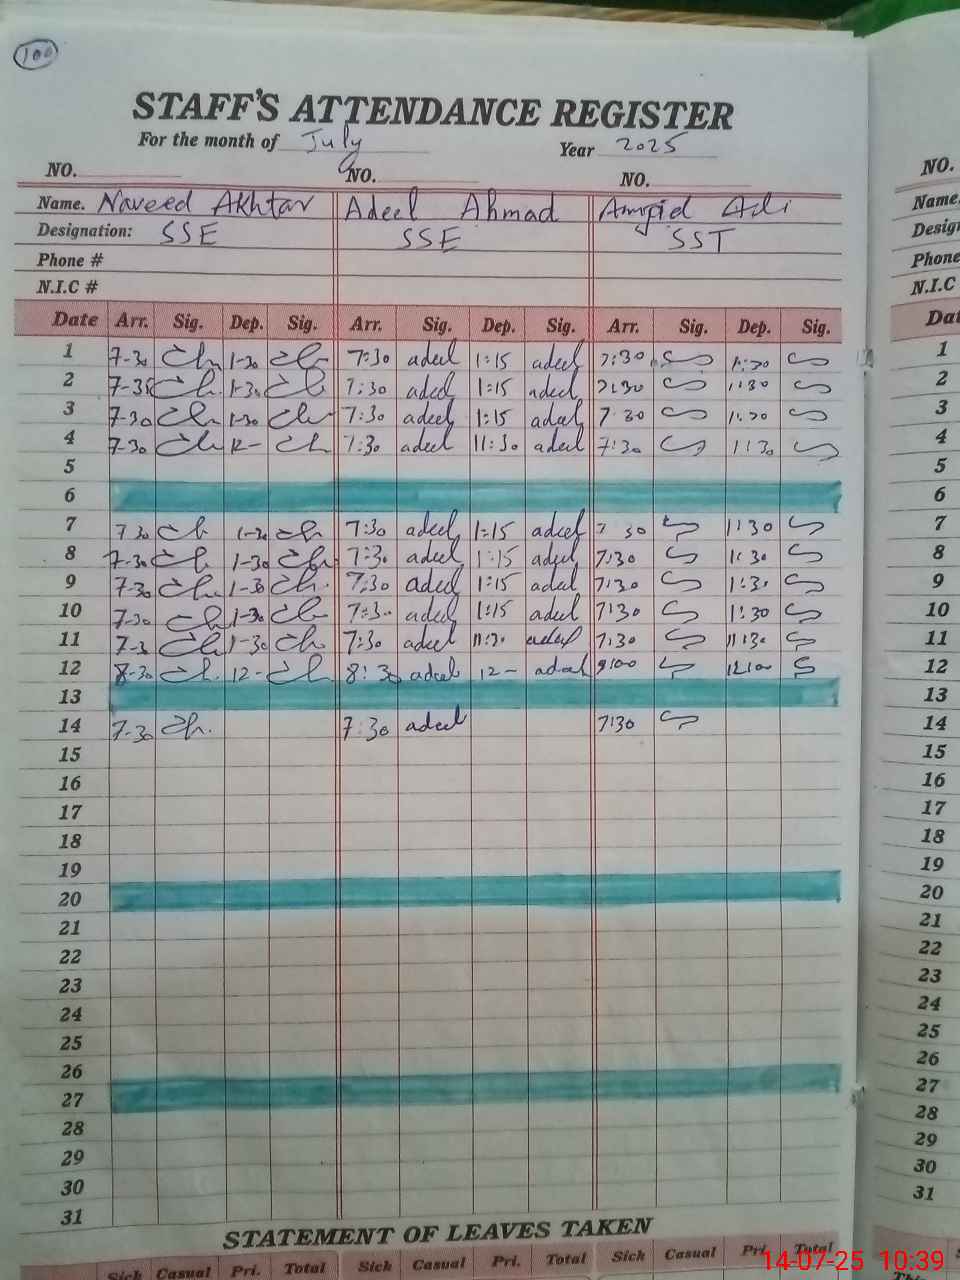 100
STAFF'S ATTENDANCE REGISTER
For the month of July Year 2025
NO. NO. NO.
Name. Naveed Akhtar Adeel Ahmad
Designation: SSE SSE SST
Phone #
N.I.C #
Date Arr. Sig. Dep. Sig. Arr. Sig. Dep. Sig. Arr. Sig. Dep. Sig.
1 7-30 1-30 7:30 adeel 1:15 adeel 7:30 1:30
2 1-30 7:30 adeel 1:15 adeel 7:30 1:30
3 7-30 1-30 7:30 adeel 1:15 adeel 7 30 1:30
4 7-30 12- 7:30 adeel 11:30 adeel 7:30 11:30
5
6
7 7 30 1-30 7:30 adeel 1:15 adeel 7 30 1:30
8 7-30 1-30 7:30 adeel 1:15 adeel 7:30 1:30
9 7-30 1-30 7:30 adeel 1:15 adeel 7:30 1:30
10 7-30 1-30 7:30 adeel 1:15 adeel 7:30 1:30
11 7-30 1-30 7:30 adeel 11:30 adeel 7:30 11:30
12 8-30 12- 8:30 adeel 12- adeel 12:00
13
14 7-30 7:30 adeel 7:30
15
16
17
18
19
20
21
22
23
24
25
26
27
28
29
30
31
STATEMENT OF LEAVES TAKEN
Sick Casual Pri. Total Sick Casual Pri. Total Sick Casual Pri. Total
NO.
Name.
1
2
3
4
5
6
7
8
9
10
11
12
13
14
15
16
17
18
19
20
21
22
23
24
25
26
27
28
29
30
31
14-07-25 10:39